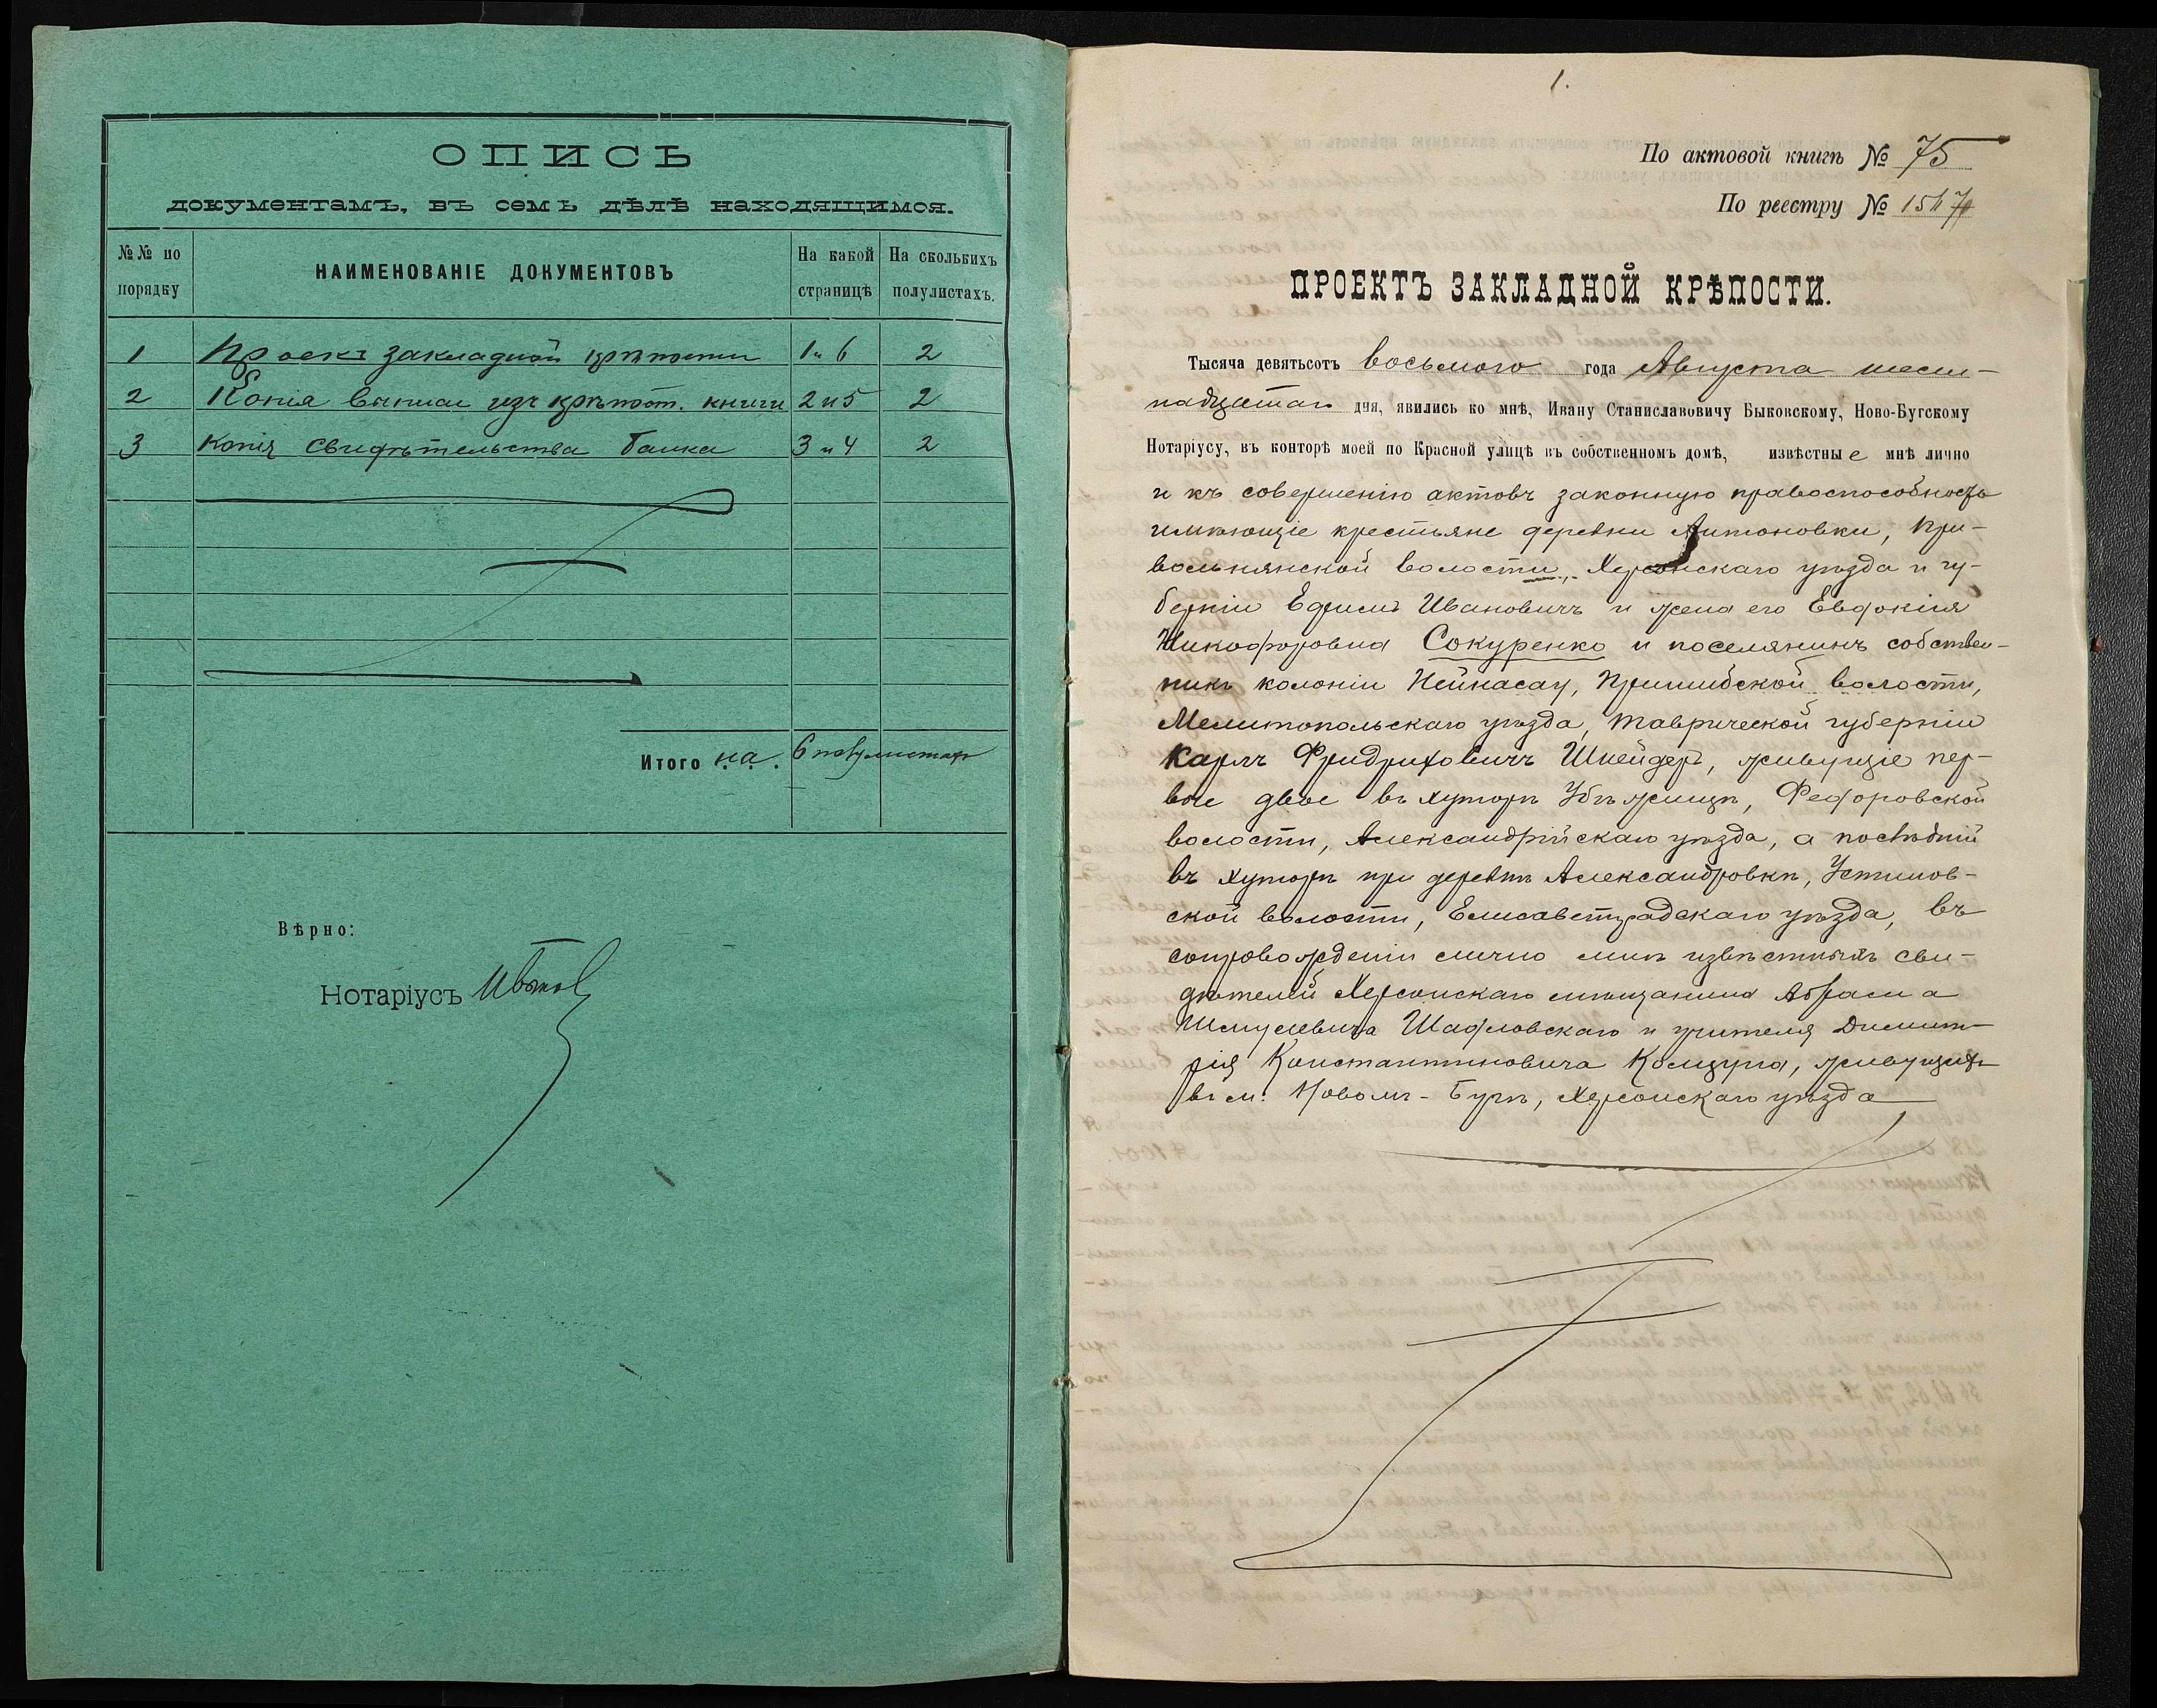 ОПИСЬ
документамъ, въ семъ дѣлѣ находящимся.
№№ по порядку
НАИМЕНОВАНІЕ ДОКУМЕНТОВЪ
На какой страницѣ
На сколькихъ полулистахъ.
1 Проектъ закладной крѣпости 1 и 6 2
2 Копія выписи изъ крѣпост. книги 2 и 5 2
3 Копія свидѣтельства банка 3 и 4 2
Итого на 6 полулистахъ
Вѣрно:
Нотаріусъ
1.
По актовой книгѣ № 75
По реестру № 1547
ПРОЕКТЪ ЗАКЛАДНОЙ КРѢПОСТИ.
Тысяча девятьсотъ восьмого года Августа шест-
надцатаго дня, явились ко мнѣ, Ивану Станиславовичу Быковскому, Ново-Бугскому
Нотаріусу, въ конторѣ моей по Красной улицѣ въ собственномъ домѣ, извѣстные мнѣ лично
и къ совершенію актовъ законную правоспособность
имѣющіе крестьяне деревни Антоновки, При-
вольнянской волости, Херсонскаго уѣзда и гу-
берніи Ефимъ Ивановичъ и жена его Евдокія
Никифоровна Сокуренко и поселянинъ собствен-
никъ колоніи Нейнасау, Пришибской волости,
Мелитопольскаго уѣзда, Таврической губерніи
Карлъ Фридриховичъ Шнейдеръ, живущіе пер-
вые двое въ хуторѣ Убѣжищѣ, Федоровской
волости, Александрійскаго уѣзда, а послѣдній
въ хуторѣ при деревнѣ Александровкѣ, Устинов-
ской волости, Елисаветградскаго уѣзда, въ
сопровожденіи лично мнѣ извѣстныхъ сви-
дѣтелей Херсонскаго мѣщанина Абрама
Шмулевича Шадловскаго и учителя Димит-
рія Константиновича Комцуна, живущихъ
въ м. Новомъ-Бугѣ, Херсонскаго уѣзда